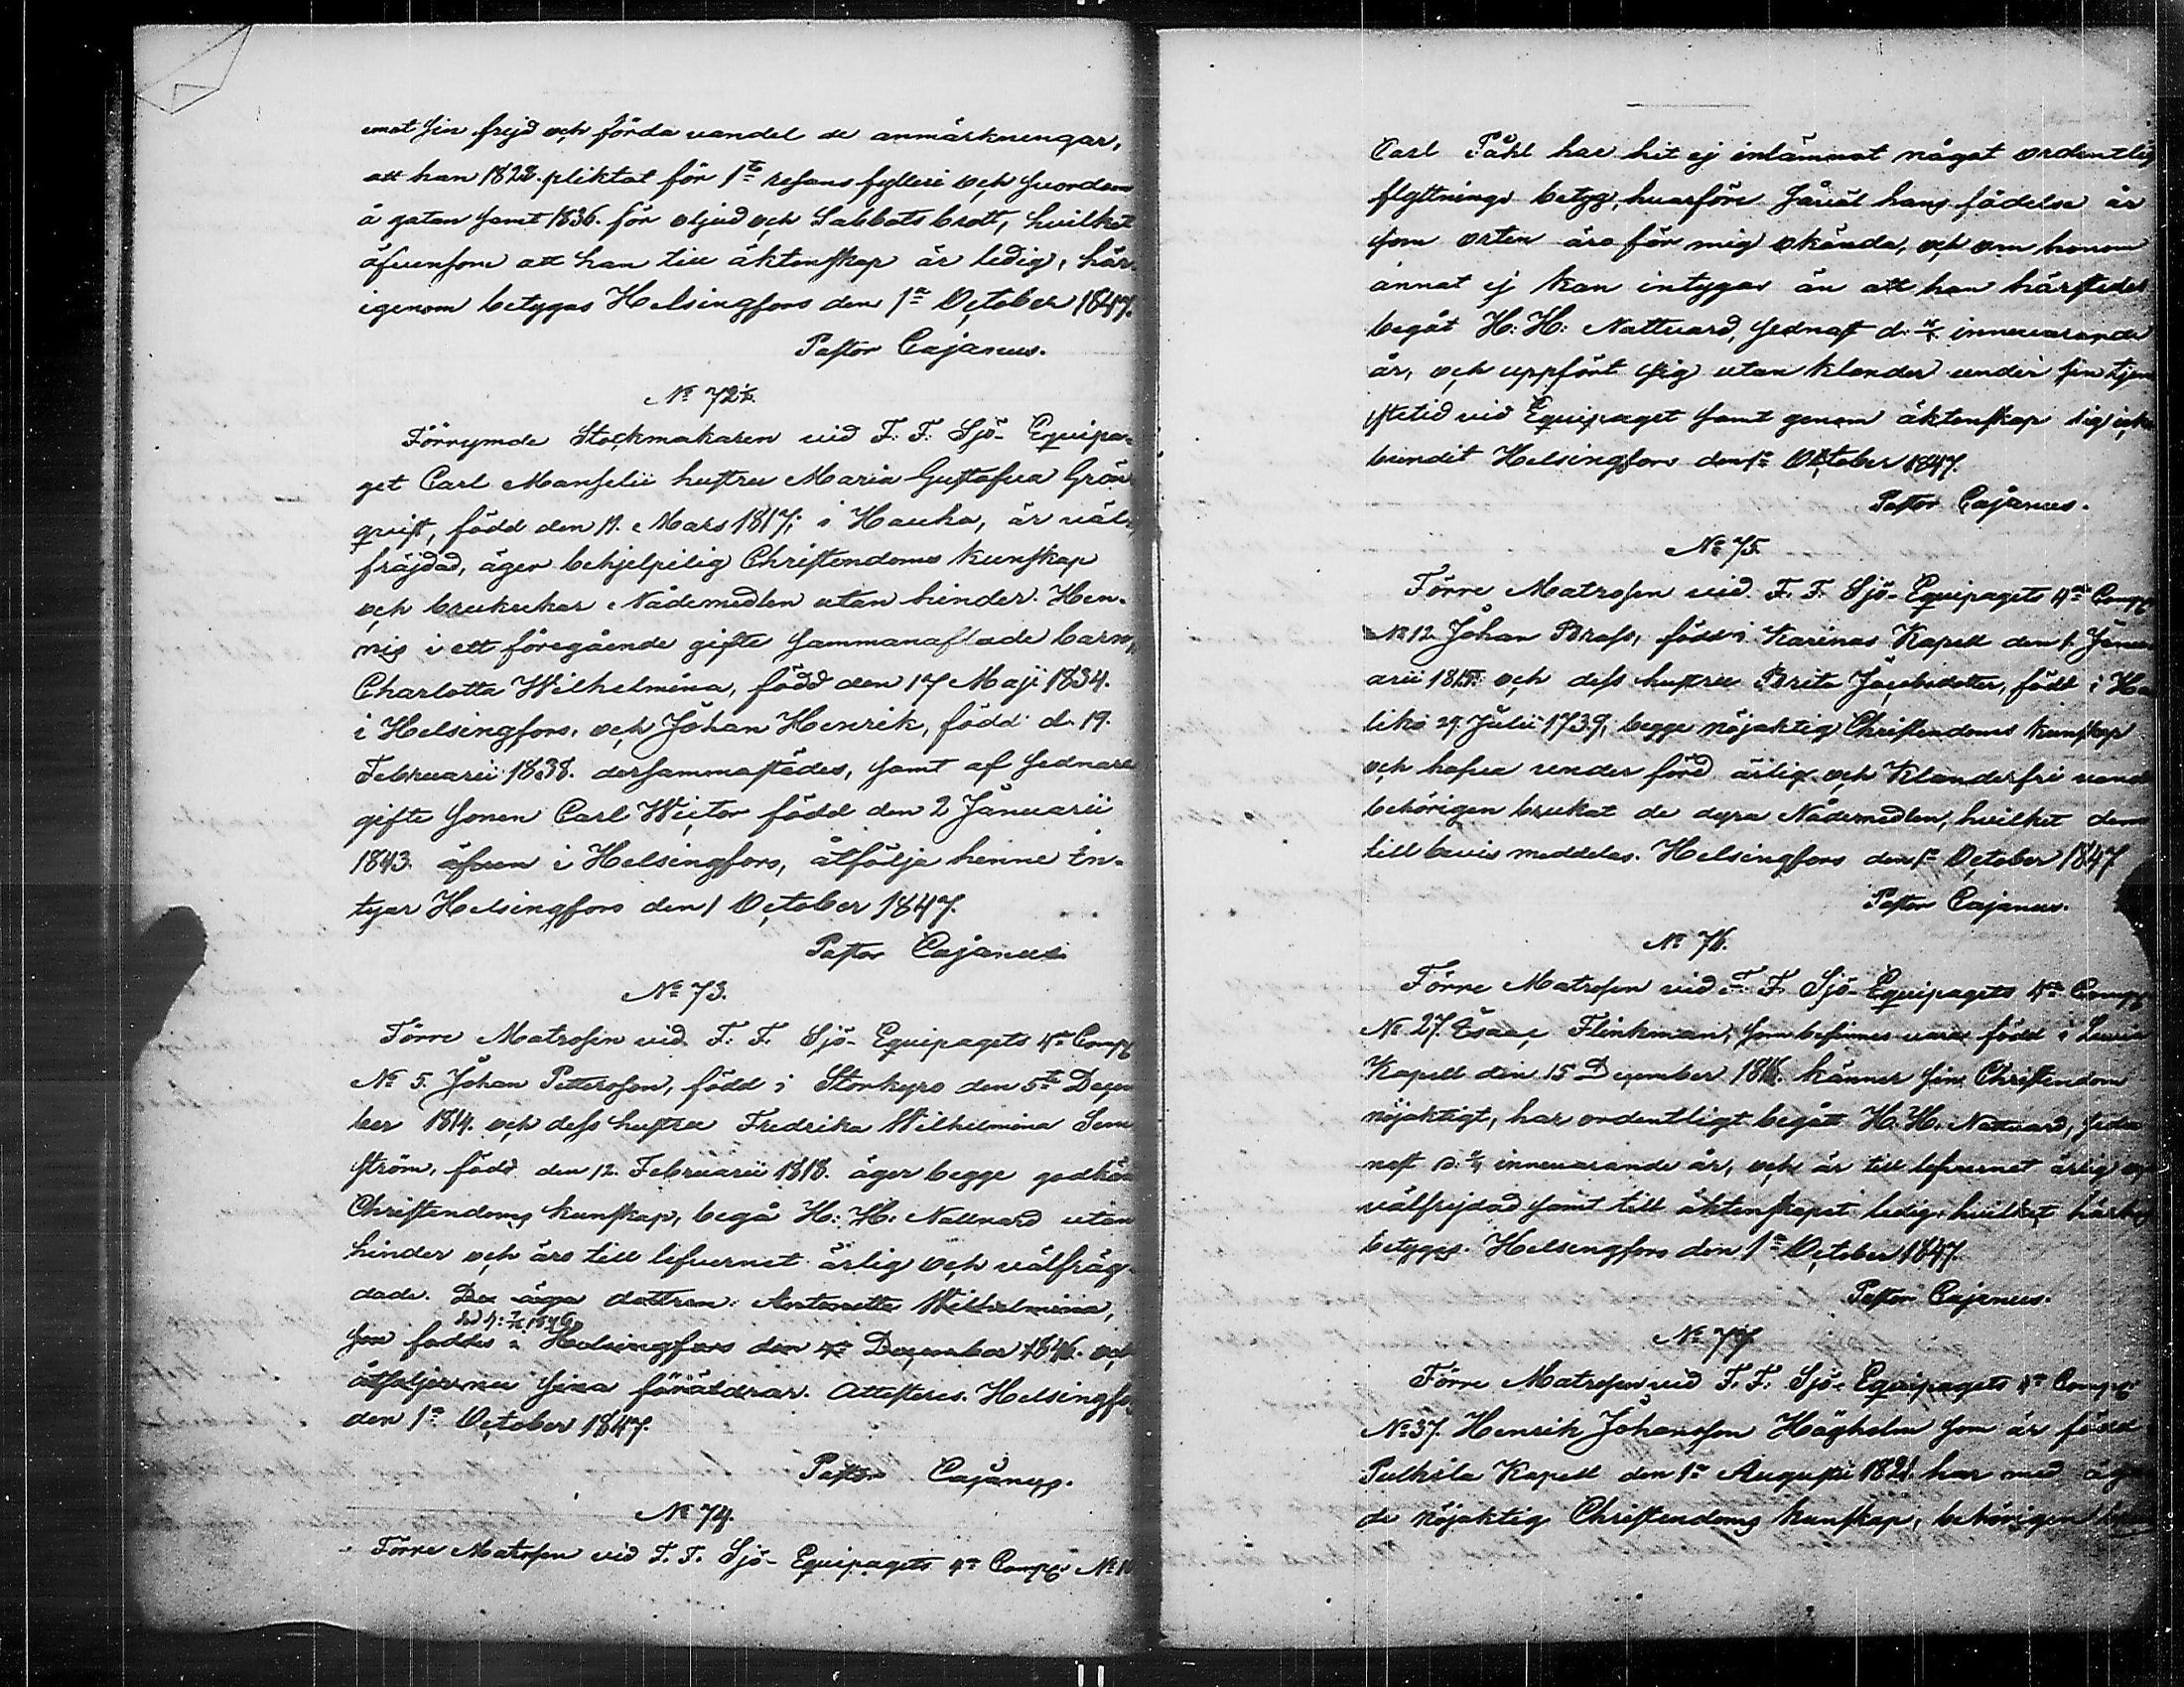 emot sin frejd och förda vandel de anmärkningar,
att han 1828. pliktat för 1sta resans fylleri och svordom
å gatan samt 1836. för oljud och Sabbats brott, hvilket
äfvensom att han till äktenskap är ledig, här-
igenom betygas Helsingfors den 1ª October 1847.
Pastor Cajanus.
No 72½.
Förrymde Stockmakaren vid F: F: Sjö-Equipa-
get Carl Manselii hustru Maria Gustafva Grön-
qvist, född den 11. Mars 1817; i Hauho, är väl-
fräjdad, äger behjelpelig Christendoms kunskap
och brukukar Nådemedlen utan hinder. Hen-
nes i ett föregående gifte sammanaflade barn,
Charlotta Wilhelmina, född den 17 Maji 1834.
i Helsingfors, och Johan Henrik, född d. 19.
Februarii 1838. dersammastädes, samt af sednare
gifte sonen Carl Wictor född den 2 Januarii
1843. äfven i Helsingfors, åtfölja henne in-
tygar Helsingfors den 1 October 1847.
Pastor Cajanus.
No 73.
Förre Matrosen vid F: F: Sjö-Equipagets 4ª Comp
No 5. Johan Pettersson, född i Storkyro den 5te Decem
ber 1814. och dess hustru Fredrika Wilhelmina Sem
ström, född den 12. Februarii 1818. äger begge godkän
Christendoms kunskap, begå H: H: Nattvard utan
hinder och äro till lefvernet ärlig och välfräg-
dade. De äga dottren: Antonette Wilhelmina,
som föddes i Helsingfors den December 1846. och
åtföljer nu sina föräldrar. Attesteras. Helsingfo
den 1ª October 1847.
Pastor Cajanus.
No 74.
Förre Matrosen vid F. F. Sjö-Equipagets 4ª Comp: No 10
Carl Påhl har hit ej inlämnat något ordentlig
flyttnings betyg, hvarföre såväl hans födelse år
som orten äro för mig okända, och om honom
annat ej kan intygas än att han härstedes
begåt H: H: Nattvard, sednast d: innevarande
år, och uppfört sig utan klander under sin tjen
stetid vid Equipaget samt genom äktenskap sig icke
bundit Helsingfors den 1ª October 1847.
Pastor Cajanus.
No 75.
Förre Matrosen vid F. F. Sjö-Equipagets 4ª Comp
No 12 Johan Brass, född i Karinas Kapell den 1. Janu
arii och dess hustru Brita Jacobsdotter, född i Ha
liko 29. Julii 1739, begge nöjaktig Christendoms kunskap
och hafva under förd ärlig och klanderfri vand
behörigen brukat de dyra Nådemedlen, hvilket dem
till bevis meddelas. Helsingfors den 1ª October 1847
Pastor Cajanus.
No 76.
Förre Matrosen vid F: F. Sjö-Equipagets 4ª Comp
No 27. Isaac Flinkman, som befinnes vara född i
Kapell den 15 December känner sin Christendom
nöjaktigt, har ordentligt begått H. H. Nattvard, sed
nast d. innevarande år, och är till lefvernet ärlig och
välfrejdad samt till äktenskapet ledig, hvilket härhos
betygas. Helsingfors den 1ª October 1847.
Pastor Cajanus.
No 77.
Förre Matrosen vid F. F: Sjö-Equipagets 4ª Comp
No 37. Henrik Johansson Högholm som är född
Pulkila Kapell den 1ª Augusti 1821. har med äg
de nöjaktig Christendoms kunskap, behörigen